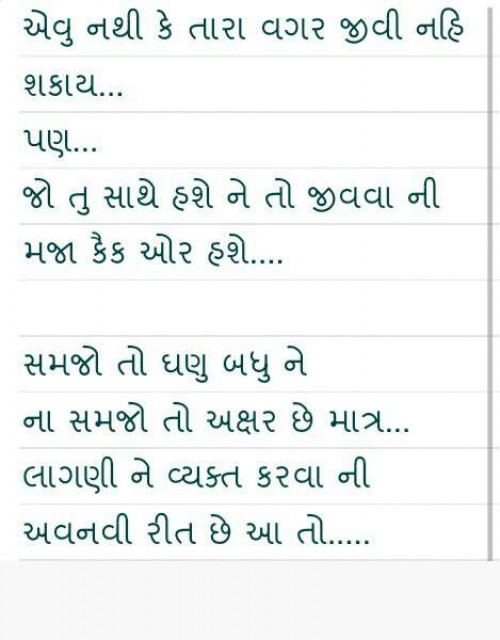 એવુ નથી કે તારા વગર જીવી નહિ
શકાય...
પણ...
જો તુ સાથે હશે ને તો જીવવા ની
મજા કૈક ઓર હશે....
સમજો તો ઘણુ બધુ ને
ના સમજો તો અક્ષર છે માત્ર...
લાગણી ને વ્યક્ત કરવા ની
અવનવી રીત છે આ તો.....